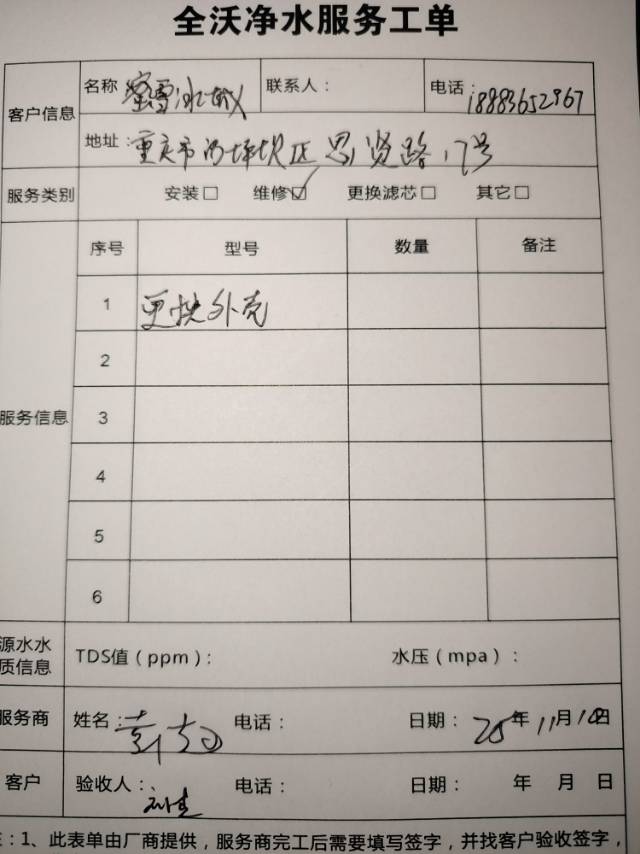 全沃净水服务工单
客户信息
名称 蜜雪冰城 联系人： 电话：18883652967
地址：重庆市沙坪坝区思贤路17号
服务类别 安装□ 维修☑ 更换滤芯□ 其它□
服务信息
序号 型号 数量 备注
1 更换外壳
2
3
4
5
6
源水水
质信息
TDS值（ppm）： 水压（mpa）：
服务商 姓名： 电话： 日期： 25年11月10日
客户 验收人： 电话： 日期： 年 月 日
：1、此表单由厂商提供，服务商完工后需要填写签字，并找客户验收签字，